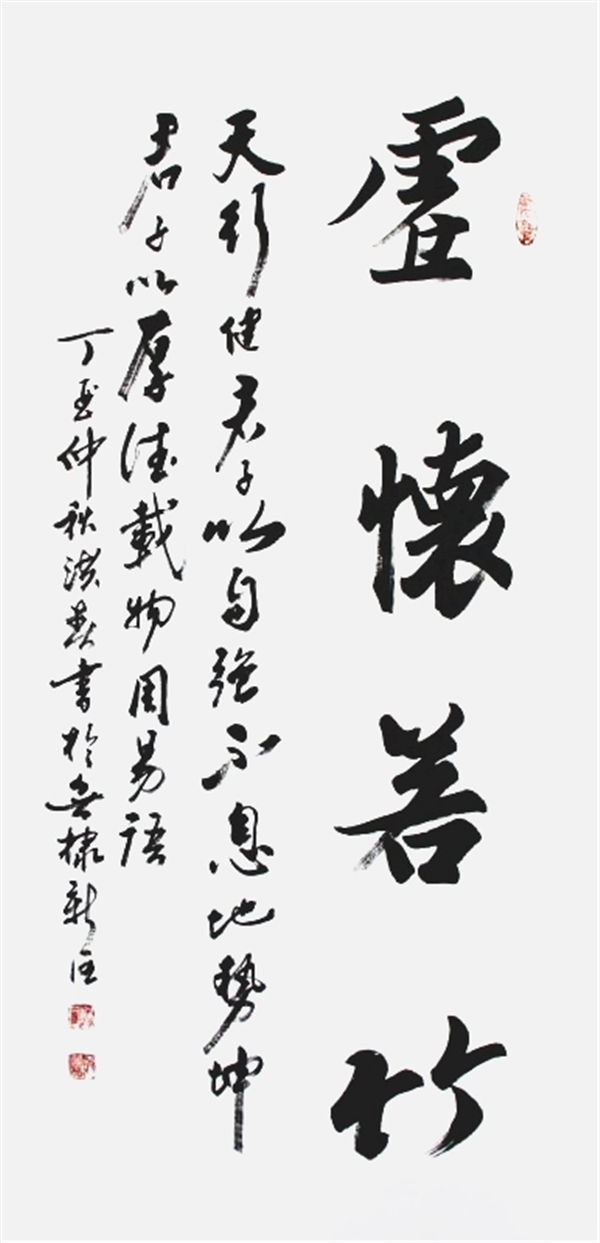 虛懷若竹
天行健君子以自强不息地勢坤
君子以厚德載物周易語
丁亥仲秋書於無棣新